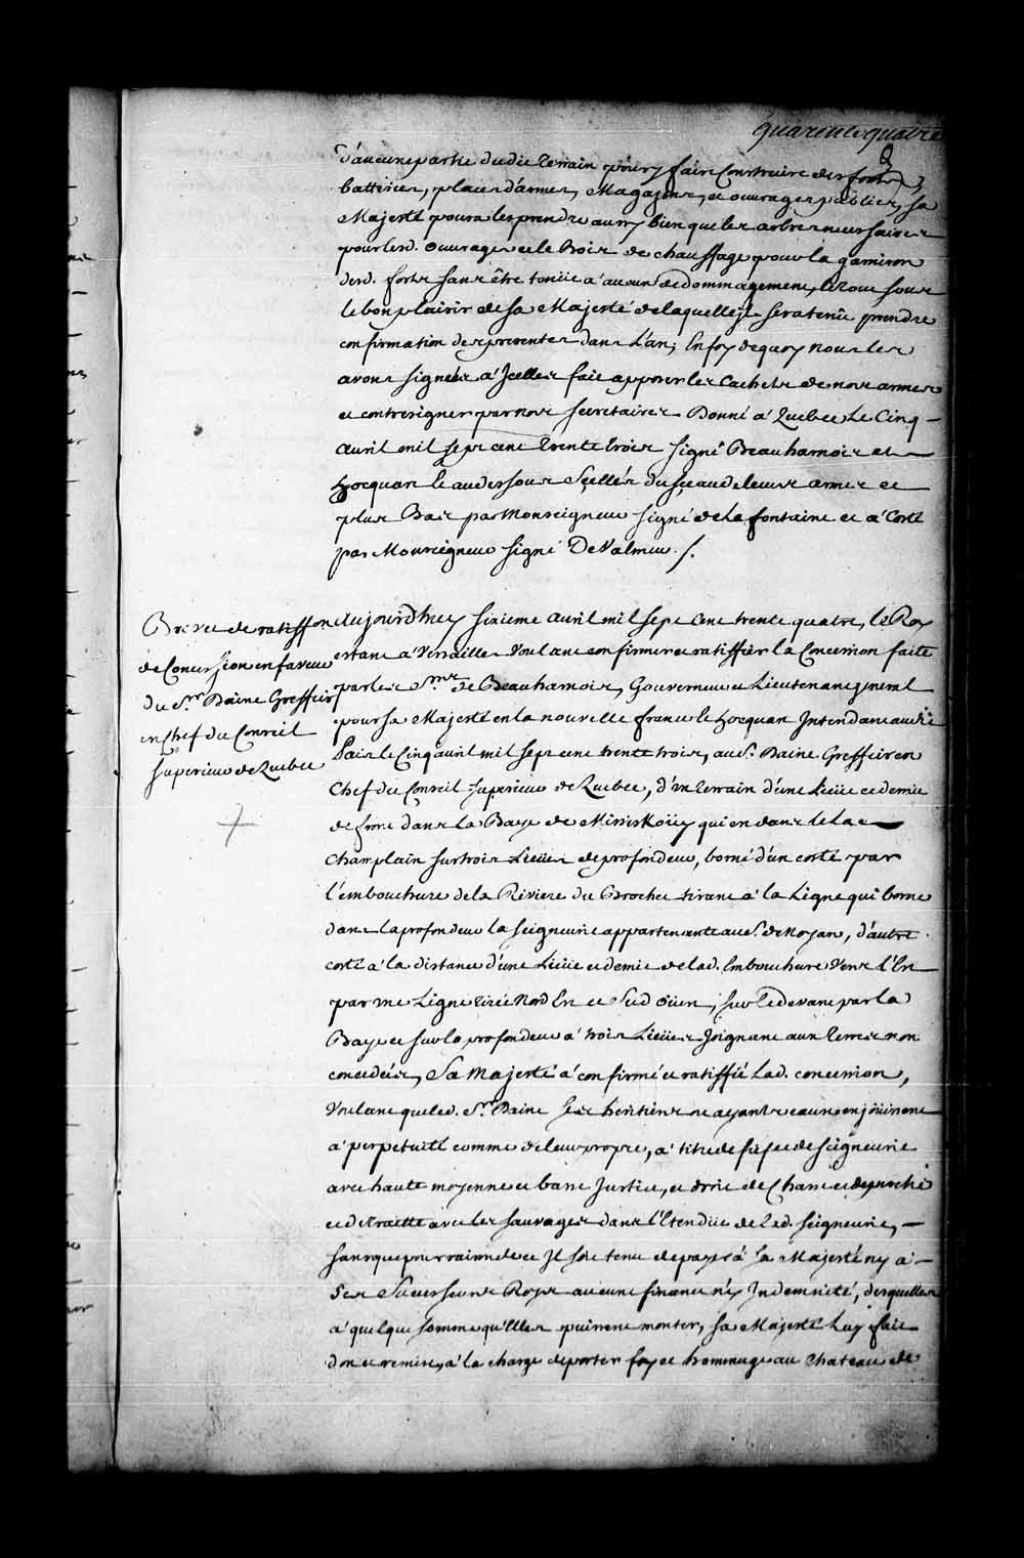 quarente quatre
d'aucune partie dudit terrain pour y faire Construire des forts,
batteries, places d'armes, Magazins, et ouvrages publics, sa
Majesté poura les prendre aussy bien que les arbres necessaires
pour lesd. ouvrages et le Bois de chauffage pour la garnison
desd. forts sans être tenüe a' aucun dedommagement, le tout sous
le bon plaisir de sa Majesté de laquelle jl sera tenû prendre
confirmation des presentes dans L'an; En foy de quoy nous les
avons signées a' Jcelles fait apposer les Cachets de nos armes
et contresigner par nos secretaires Donné a' Quebec Le Cinq
avril mil sept cent trente trois signé Beauharnois et
hocquart et au dessous Scellés du sçeau de leurs armes et
plus Bas par Monseigneur signé de Lafontaine et a' Costé
par Monseigneur signé DeValmur ./.
Brevet de ratiffon
de Concession en faveur
du Sr. Daine Greffier
en Chef du Conseil
superieur de Quebec
aujourdhuy sixieme avril mil sept Cent trente quatre, le Roy
estant a' Versailles voulant confirmer et ratiffier la Concession faite
par les Srs. de Beauharnois, Gouverneur et Lieutenant general
pour sa Majesté en la nouvelle france et hocquart Intendant audit
Païs le Cinq avril mil sept cent trente trois, au S. Daine Greffier en
Chef du Conseil superieur de Quebec, d'un terrain d'une Lieüe et demie
de front dans La Baye de Missiskoüy qui est dans le lac
Champlain sur trois Lieües de profondeur, borné d'un costé par
l'embouchure de la Riviere du Brochet tirant a' la Ligne qui borne
dans la profondeur la seigneurie appartenante au S. de Noyan, d'autre
costé a' la distance d'une Lieüe et demie de lad. Embouchure Vers L'Est
par une Ligne tirée Nord Est et Sud oüest, sur le devant par la
Baye et sur la profondeur a' trois Lieües Joignant aux terres non
concedées, Sa Majesté a' confirmé et ratiffié Lad. concession,
voulant que led. Sr. Daine ses heritiers ou ayants cause en joüissent
a' perpetuité comme de leur propre, a' titre de fief et de seigneurie
avec haute moyenne et basse Justice, et droit de Chasse et de pesche
et de traitte avec les sauvages dans l'Etendüe de lad. seigneurie,
sans que pour raison de ce Jl soit tenu de payer a' sa Majesté ny a'
Ses Successeurs Roys aucune finance n'y Indemnité, desquelles
a' quelque somme qu'Elles puissent monter, sa Majesté Luy fait
don et remise, a' la charge de porter foy et hommage au Chateau de